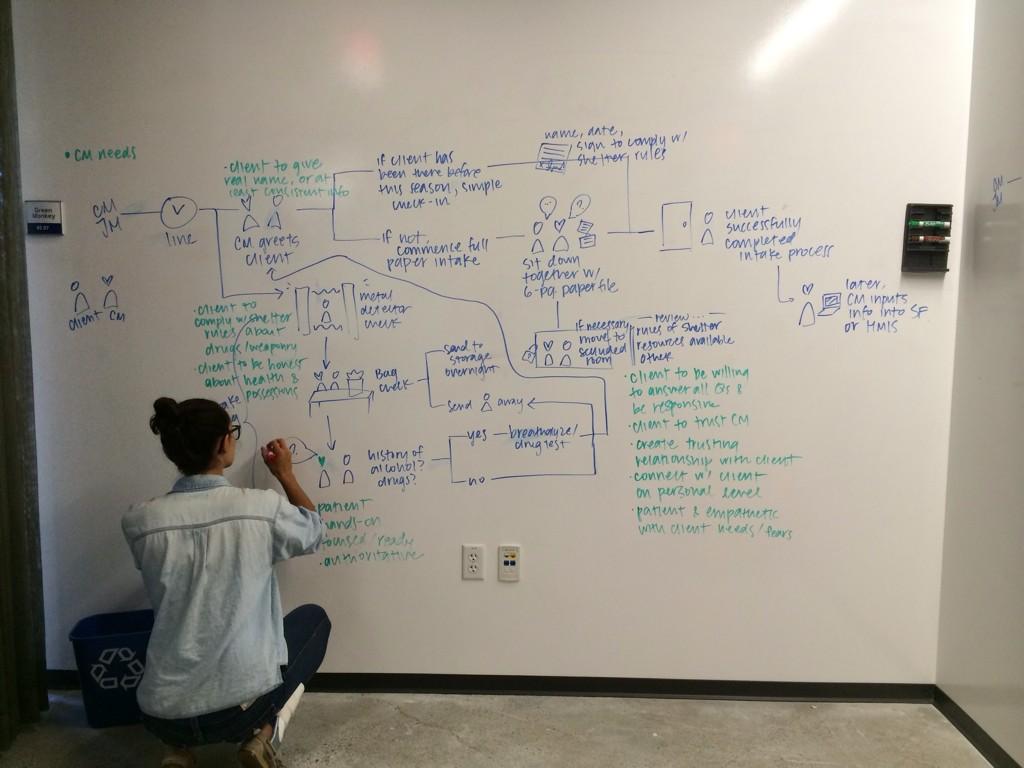 • CM needs
Green
Monkey
CM
JM
line
client CM
• client to give
real name, or at
least consistent info
CM greets
client
if client has
been there before
this season, simple
check-in
if not,
commence full
paper intake
name, date,
sign to comply w/
shelter rules
sit down
together w/
6-pg paper file
client
successfully
completed
intake process
later,
CM inputs
info into SF
or HMIS
if necessary
move to
secluded
room
review...
rules of shelter
resources available
other
• client to
comply w/ shelter
rules about
drugs/weaponry
• client to be honest
about health &
possessions
metal
detector
check
Bag
check
send to
storage
overnight
send away
history of
alcohol?
drugs?
yes
breathalyze/
drug test
no
?
patient
hands-on
focused/ready
• authoritative
• client to be willing
to answer all Qs &
be responsive
• client to trust CM
• create trusting
relationship with client
• connect w/ client
on personal level
• patient & empathetic
with client needs/fears